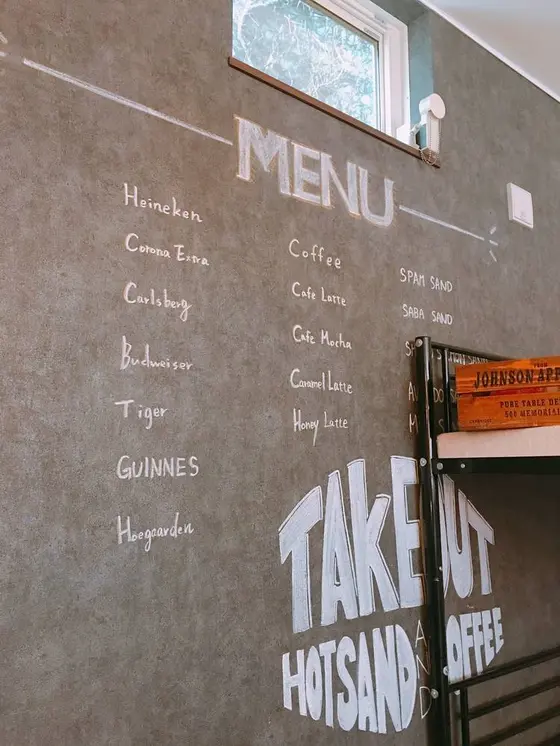 MENU
Heineken
Corona Extra
Carlsberg
Budweiser
Tiger
GUINNES
Hoegaarden
Coffee
Cafe Latte
Cafe Mocha
Caramel Latte
Honey Latte
SPAM SAND
SABA SAND
TAKE OUT
HOTSAND AND COFFEE
JOHNSON APP
PURE TABLE DE
500 MEMORIAL